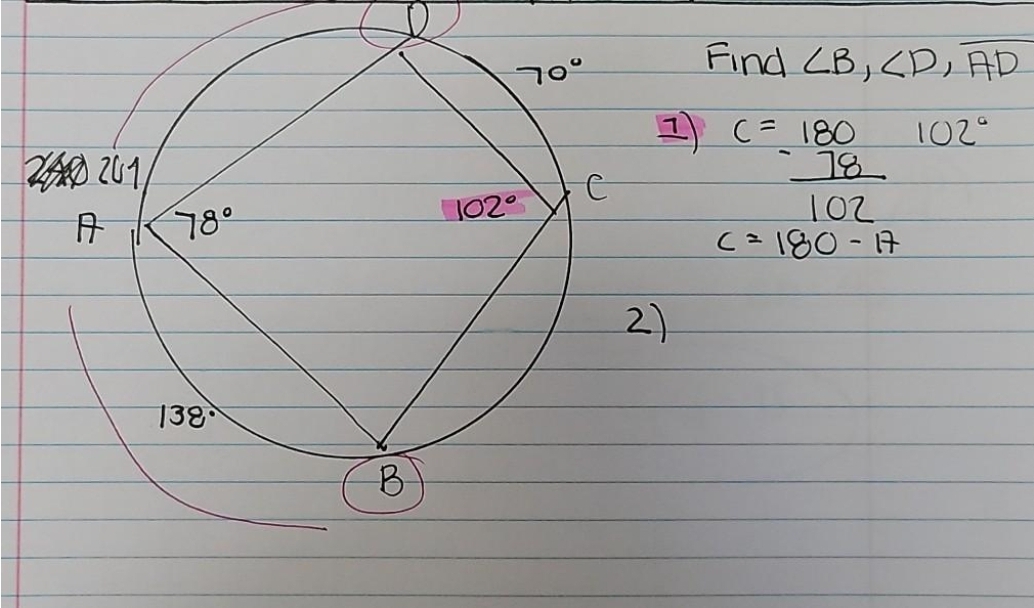 D
70°
Find ∠B, ∠D, AD
1) C = 180 102°
- 78
102
C = 180 - A
201
A 78° 102° C
2)
138°
B